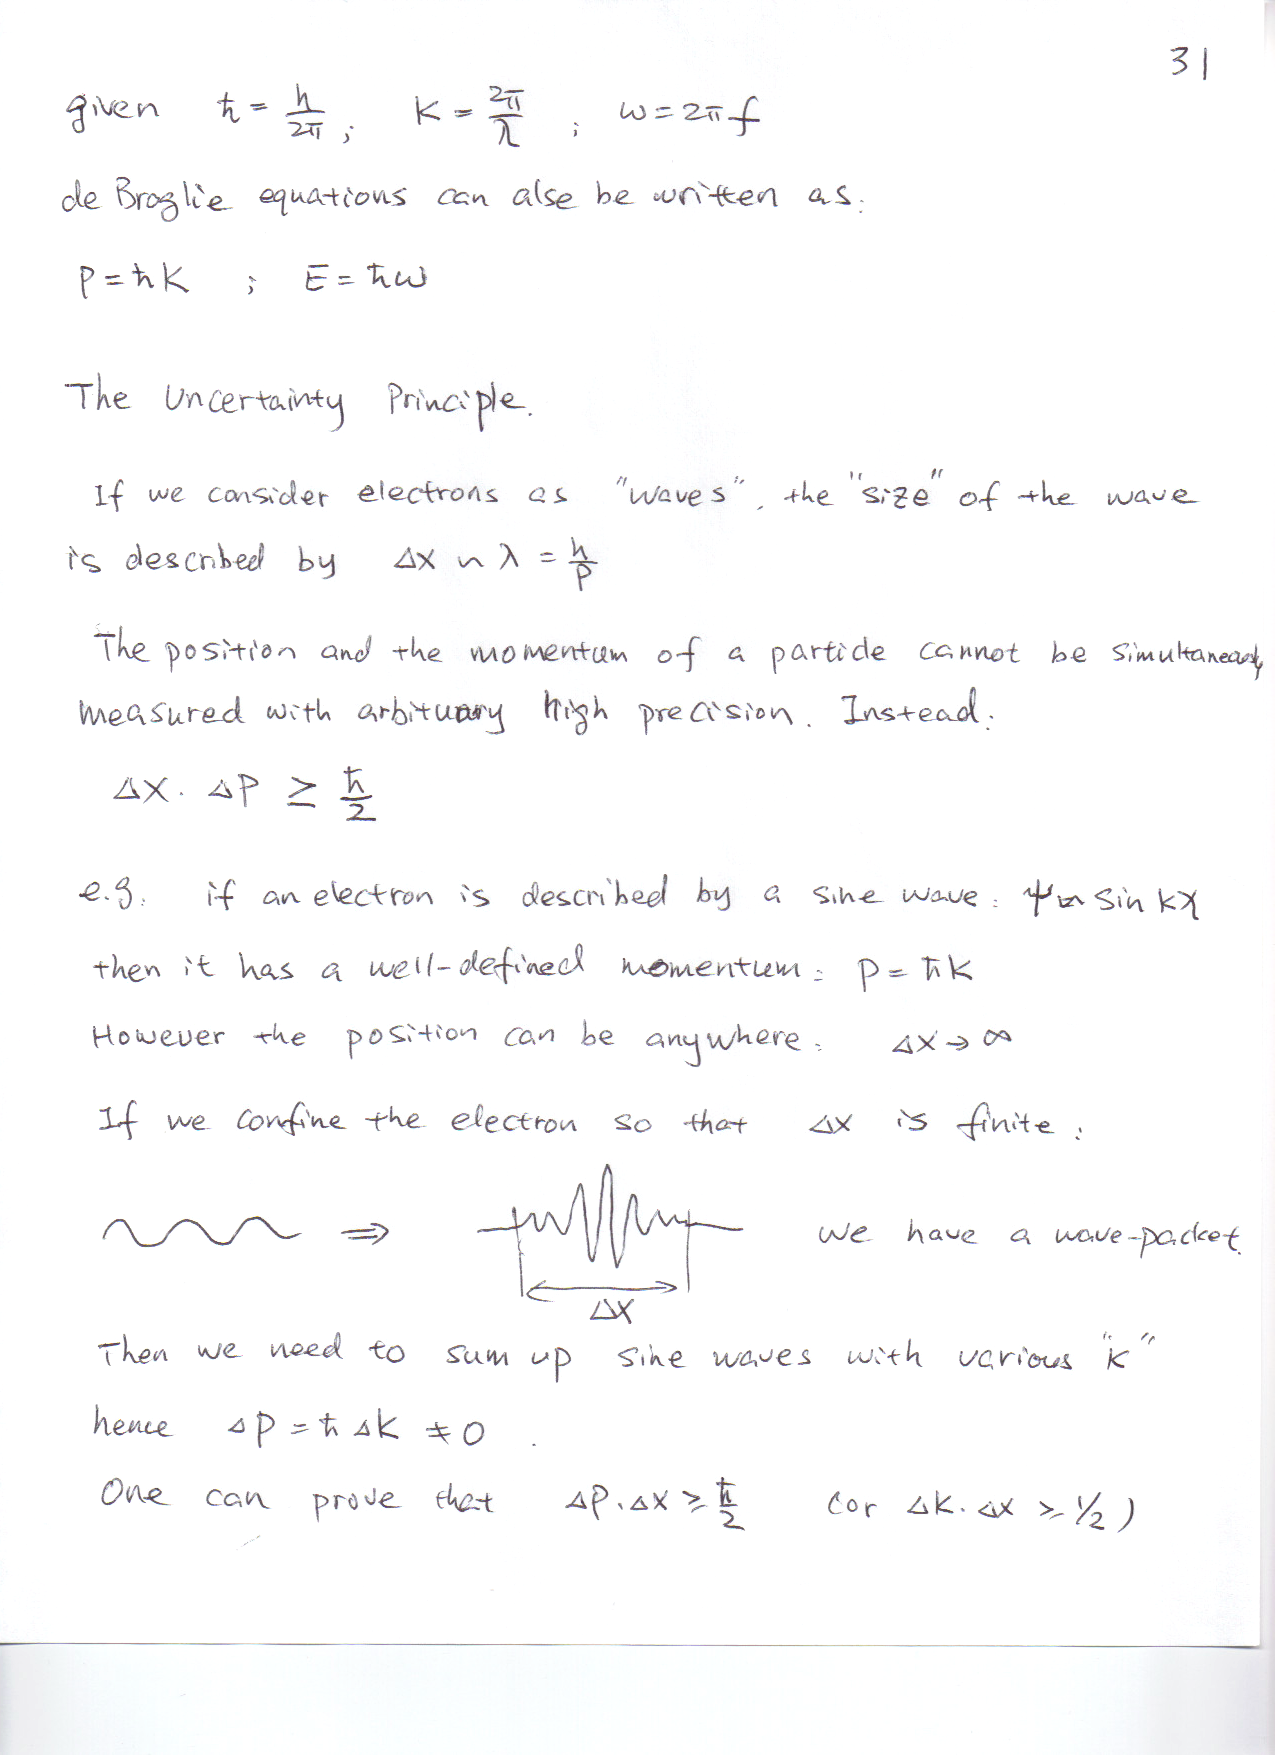 31
given ħ = h/2π ; K = 2π/λ ; ω = 2πf
de Broglie equations can also be written as:
P = ħK ; E = ħω
The Uncertainty Principle.
If we consider electrons as "waves", the "size" of the wave
is described by ΔX ~ λ = h/P
The position and the momentum of a particle cannot be simultaneously
measured with arbituary high precision. Instead:
ΔX · ΔP ≥ ħ/2
e.g. if an electron is described by a sine wave: Ψ ~ Sin kX
then it has a well-defined momentum: P = ħK
However the position can be anywhere: ΔX → ∞
If we confine the electron so that ΔX is finite:
⇒ we have a wave-packet.
ΔX
Then we need to sum up sine waves with various "k"
hence ΔP = ħ ΔK ≠ 0.
One can prove that ΔP · ΔX ≥ ħ/2 (or ΔK · ΔX ≥ 1/2)